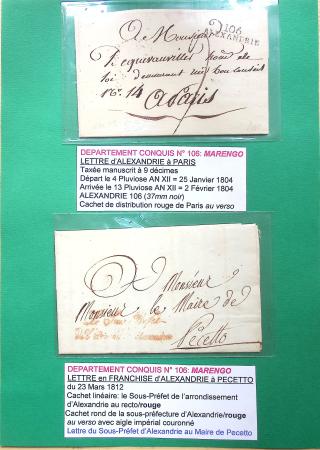 A Monsieur
106
ALEXANDRIE
loi demeurant
N° 14
A Paris
DEPARTEMENT CONQUIS N° 106: MARENGO
LETTRE d'ALEXANDRIE à PARIS
Taxée manuscrit à 9 décimes
Départ le 4 Pluviose AN XII = 25 Janvier 1804
Arrivée le 13 Pluviose AN XII = 2 Février 1804
ALEXANDRIE 106 (37mm noir)
Cachet de distribution rouge de Paris au verso
Monsieur
Monsieur le Maire de
Pecetto
DEPARTEMENT CONQUIS N° 106: MARENGO
LETTRE en FRANCHISE d'ALEXANDRIE à PECETTO
du 23 Mars 1812
Cachet linéaire: le Sous-Préfet de l'arrondissement
d'Alexandrie au recto/rouge
Cachet rond de la sous-préfecture d'Alexandrie/rouge
au verso avec aigle impérial couronné
Lettre du Sous-Préfet d'Alexandrie au Maire de Pecetto